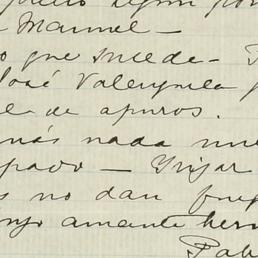 Manuel —
que sucede —
José Valenzuela
de apuros.
más nada
pado — Yrijar
s no dan
amante her
Pab